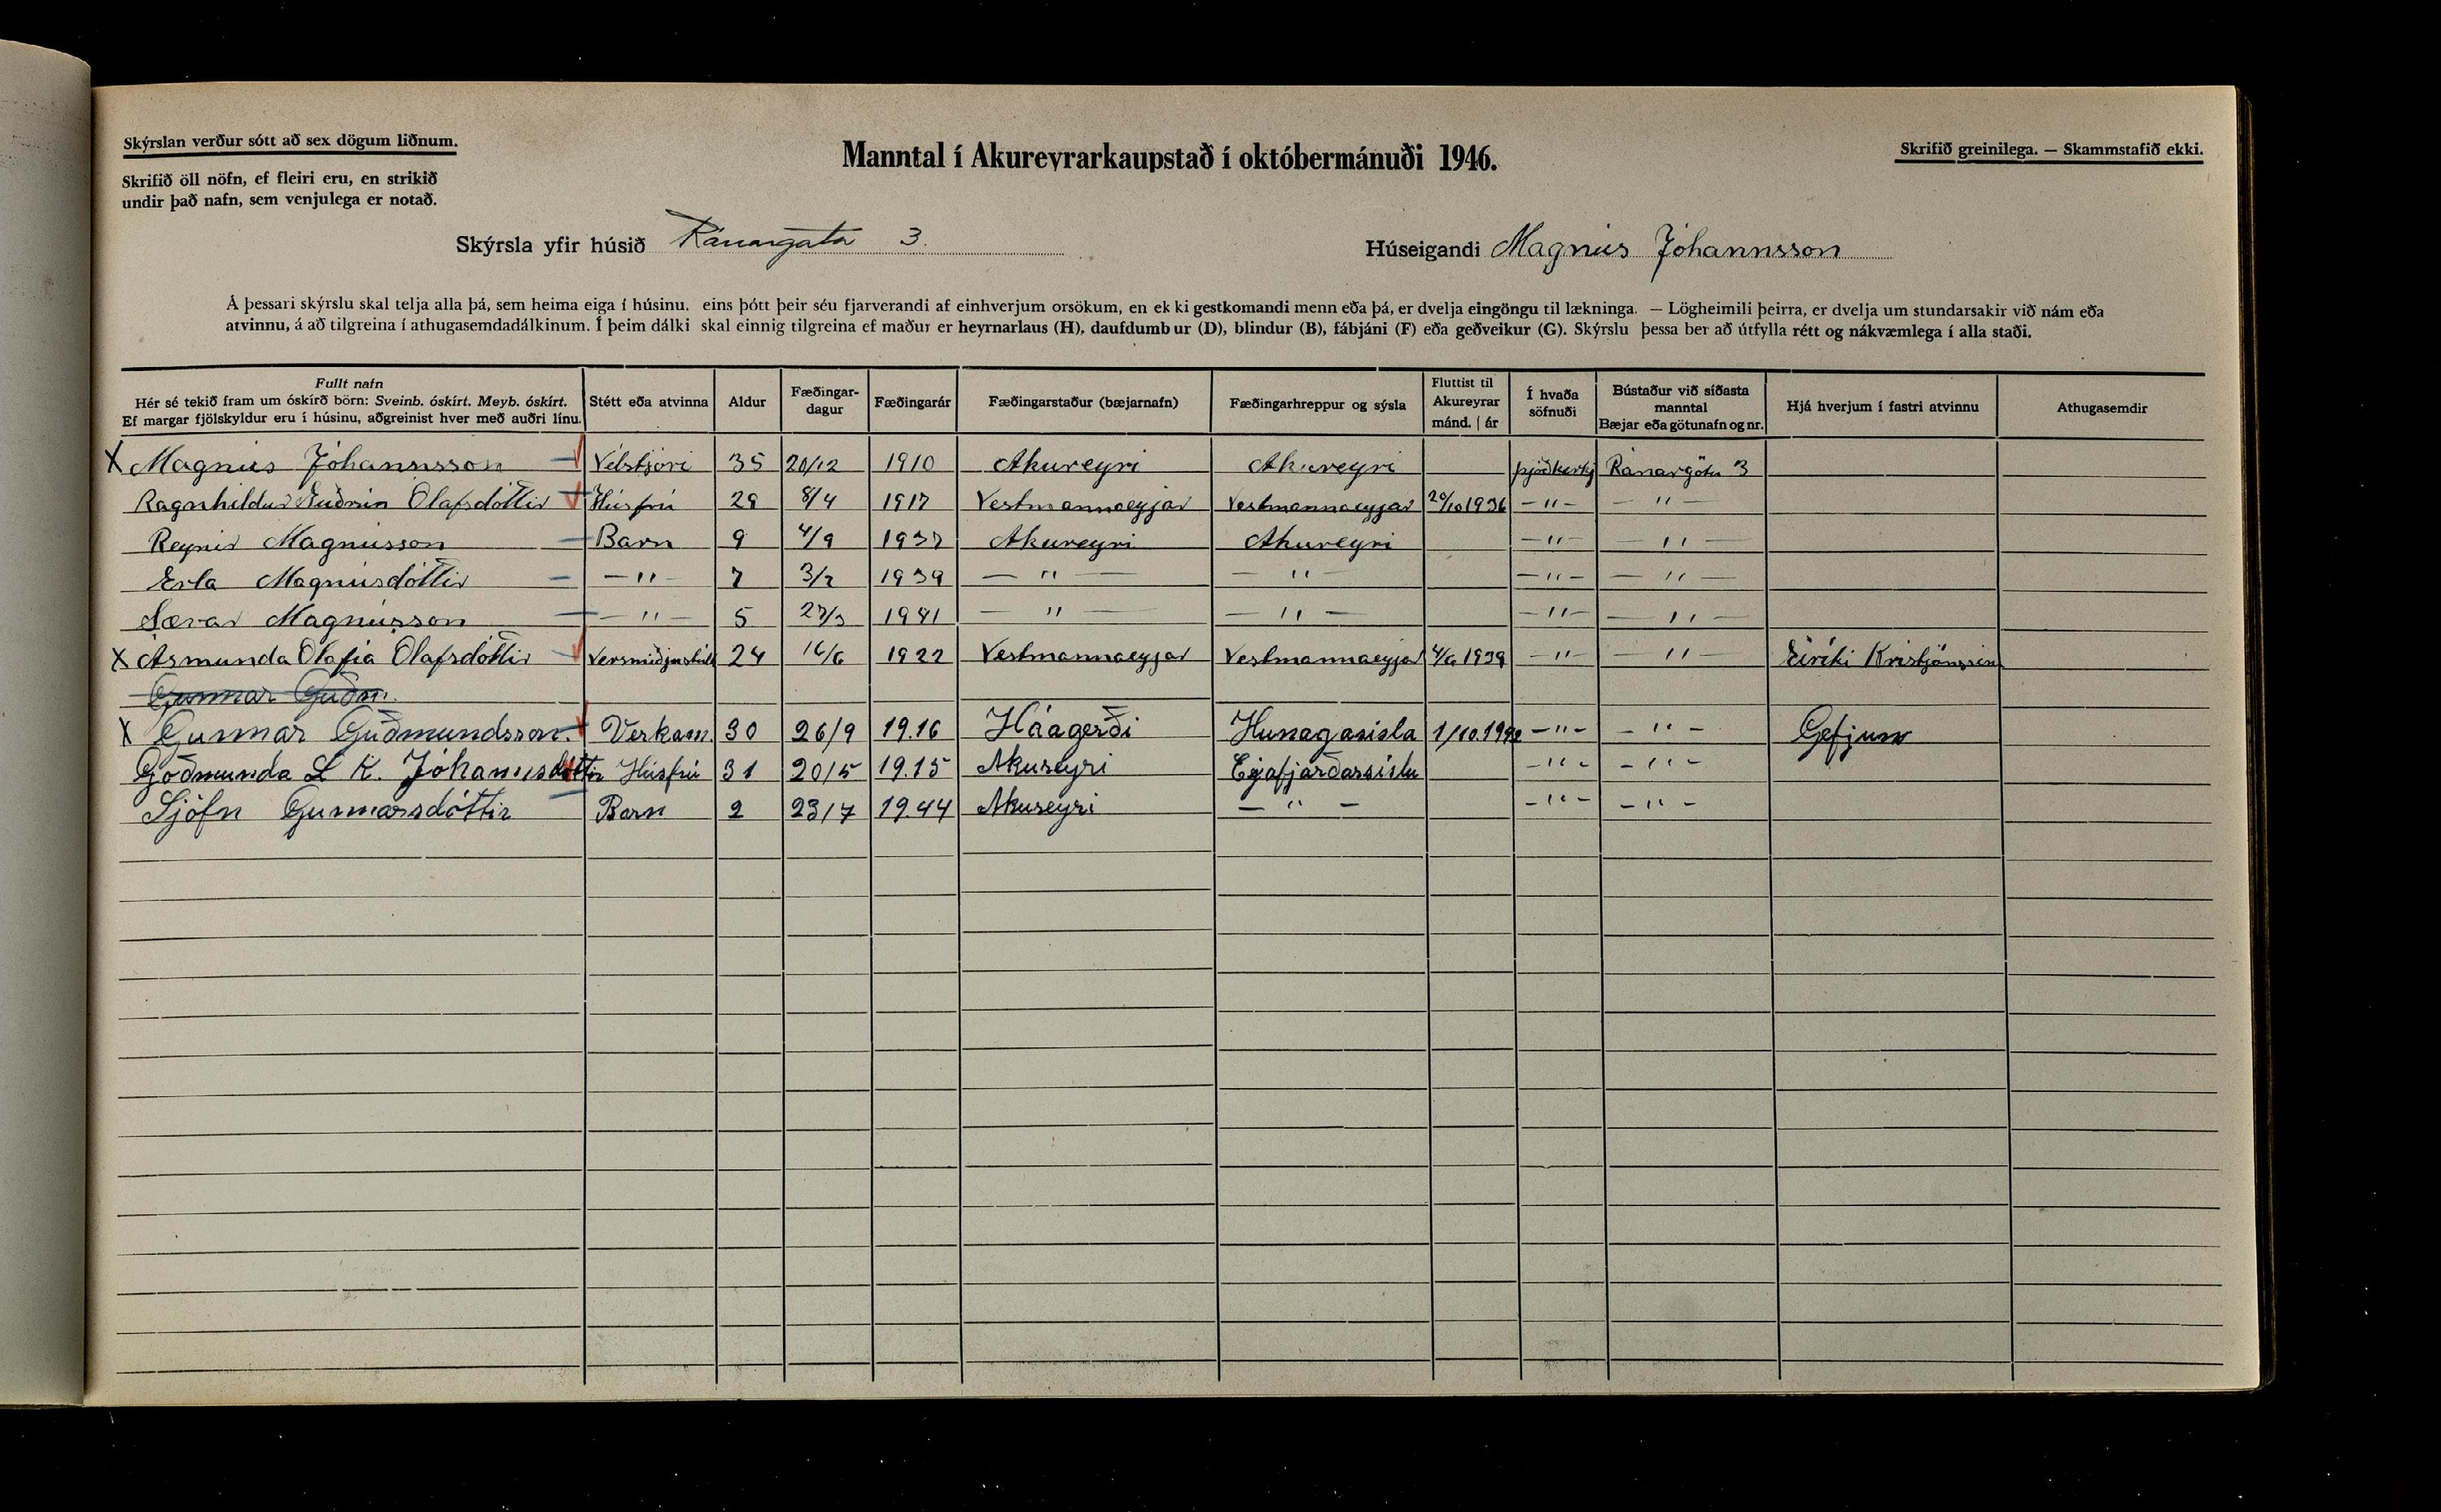 Skýrslan verður sótt að sex dögum liðnum.
Skrifið öll nöfn, ef fleiri eru, en strikið
undir það nafn, sem venjulega er notað.
Manntal í Akureyrarkaupstað í októbermánuði 1946.
Skrifið greinilega. — Skammstafið ekki.
Skýrsla yfir húsið Ránargata 3.
Húseigandi Magnús Jóhannsson
Á þessari skýrslu skal telja alla þá, sem heima eiga í húsinu, eins þótt þeir séu fjarverandi af einhverjum orsökum, en ekki gestkomandi menn eða þá, er dvelja eingöngu til lækninga. — Lögheimili þeirra, er dvelja um stundarsakir við nám eða
atvinnu, á að tilgreina í athugasemdadálkinum. Í þeim dálki skal einnig tilgreina ef maður er heyrnarlaus (H), daufdumbur (D), blindur (B), fábjáni (F) eða geðveikur (G). Skýrslu þessa ber að útfylla rétt og nákvæmlega í alla staði.
Fullt nafn Hér sé tekið fram um óskírð börn: Sveinb. óskírt. Meyb. óskírt. Ef margar fjölskyldur eru í húsinu, aðgreinist hver með auðri línu. Stétt eða atvinna Aldur Fæðingar-dagur Fæðingarár Fæðingarstaður (bæjarnafn) Fæðingarhreppur og sýsla Fluttist til Akureyrar mánd. | ár Í hvaða söfnuði Bústaður við síðasta manntal Bæjar eða götunafn og nr. Hjá hverjum í fastri atvinnu Athugasemdir
X Magnús Jóhannsson Vélstjóri 35 20/12 1910 Akureyri Akureyri þjóðkirkj Ránargötu 3
Ragnhildur Guðrún Ólafsdóttir Húsfrú 29 8/4 1917 Vestmannaeyjar Vestmannaeyjar 20/10 1936 —"— —"—
Reynir Magnússon Barn 9 4/9 1937 Akureyri Akureyri —"— —"—
Erla Magnúsdóttir —"— 7 3/2 1939 —"— —"— —"— —"—
Sævar Magnússon —"— 5 27/3 1941 —"— —"— —"— —"—
X Ásmunda Ólafía Ólafsdóttir 24 16/6 1922 Vestmannaeyjar Vestmannaeyjar 4/6 1939 —"— —"— Eiríki Kristjánssini
Gunnar Guðm.
X Gunnar Guðmundsson. Verkam. 30 26/9 19.16 Háagerði Hunagasísla 1/10. —"— —"— Gefjunn
Góðmunda L K. Jóhannsdóttir Húsfrú 31 20/5 19.15 Akureyri Eyjafjarðarsíslu —"— —"—
Sjöfn Gunnarsdóttir Barn 2 23/7 19.44 Akureyri —"— —"— —"—